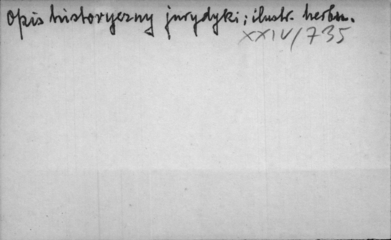 Opis historyczny jurydyki; ilustr. herbu.
XXIV/735